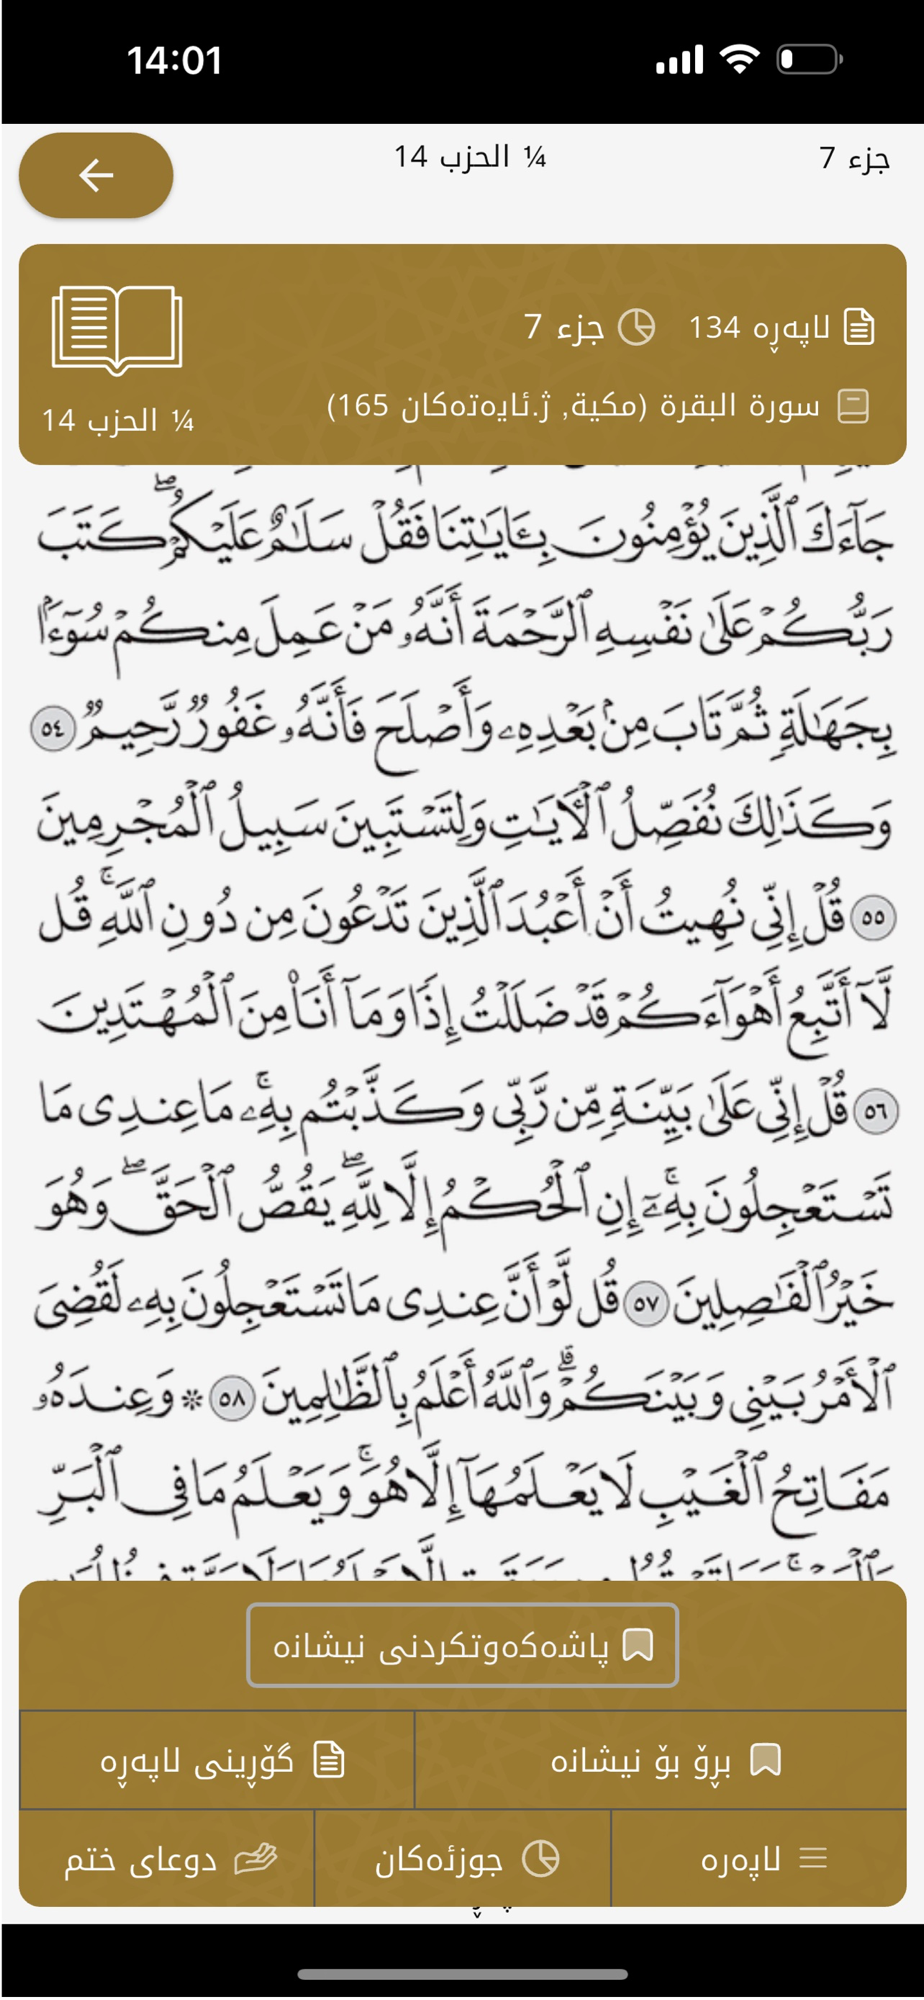 14:01
جزء 7
¼ الحزب 14
لاپەڕە 134
جزء 7
سورة البقرة (مکیة, ژ.ئایەتەکان 165)
¼ الحزب 14
جَآءَكَ ٱلَّذِينَ يُؤْمِنُونَ بِـَٔايَـٰتِنَا فَقُلْ سَلَـٰمٌ عَلَيْكُمْ ۖ كَتَبَ
رَبُّكُمْ عَلَىٰ نَفْسِهِ ٱلرَّحْمَةَ أَنَّهُۥ مَنْ عَمِلَ مِنكُمْ سُوٓءًۢا
بِجَهَـٰلَةٍ ثُمَّ تَابَ مِنۢ بَعْدِهِۦ وَأَصْلَحَ فَأَنَّهُۥ غَفُورٌ رَّحِيمٌ ٥٤
وَكَذَٰلِكَ نُفَصِّلُ ٱلْـَٔايَـٰتِ وَلِتَسْتَبِينَ سَبِيلُ ٱلْمُجْرِمِينَ
٥٥ قُلْ إِنِّى نُهِيتُ أَنْ أَعْبُدَ ٱلَّذِينَ تَدْعُونَ مِن دُونِ ٱللَّهِ ۚ قُل
لَّآ أَتَّبِعُ أَهْوَآءَكُمْ قَدْ ضَلَلْتُ إِذًا وَمَآ أَنَا۠ مِنَ ٱلْمُهْتَدِينَ
٥٦ قُلْ إِنِّى عَلَىٰ بَيِّنَةٍ مِّن رَّبِّى وَكَذَّبْتُم بِهِۦ ۚ مَا عِندِى مَا
تَسْتَعْجِلُونَ بِهِۦٓ ۚ إِنِ ٱلْحُكْمُ إِلَّا لِلَّهِ ۖ يَقُصُّ ٱلْحَقَّ ۖ وَهُوَ
خَيْرُ ٱلْفَـٰصِلِينَ ٥٧ قُل لَّوْ أَنَّ عِندِى مَا تَسْتَعْجِلُونَ بِهِۦ لَقُضِىَ
ٱلْأَمْرُ بَيْنِى وَبَيْنَكُمْ ۗ وَٱللَّهُ أَعْلَمُ بِٱلظَّـٰلِمِينَ ٥٨ * وَعِندَهُۥ
مَفَاتِحُ ٱلْغَيْبِ لَا يَعْلَمُهَآ إِلَّا هُوَ ۚ وَيَعْلَمُ مَا فِى ٱلْبَرِّ
پاشەکەوتکردنی نیشانە
بڕۆ بۆ نیشانە
گۆڕینی لاپەڕە
لاپەرە
جوزئەکان
دوعای ختم